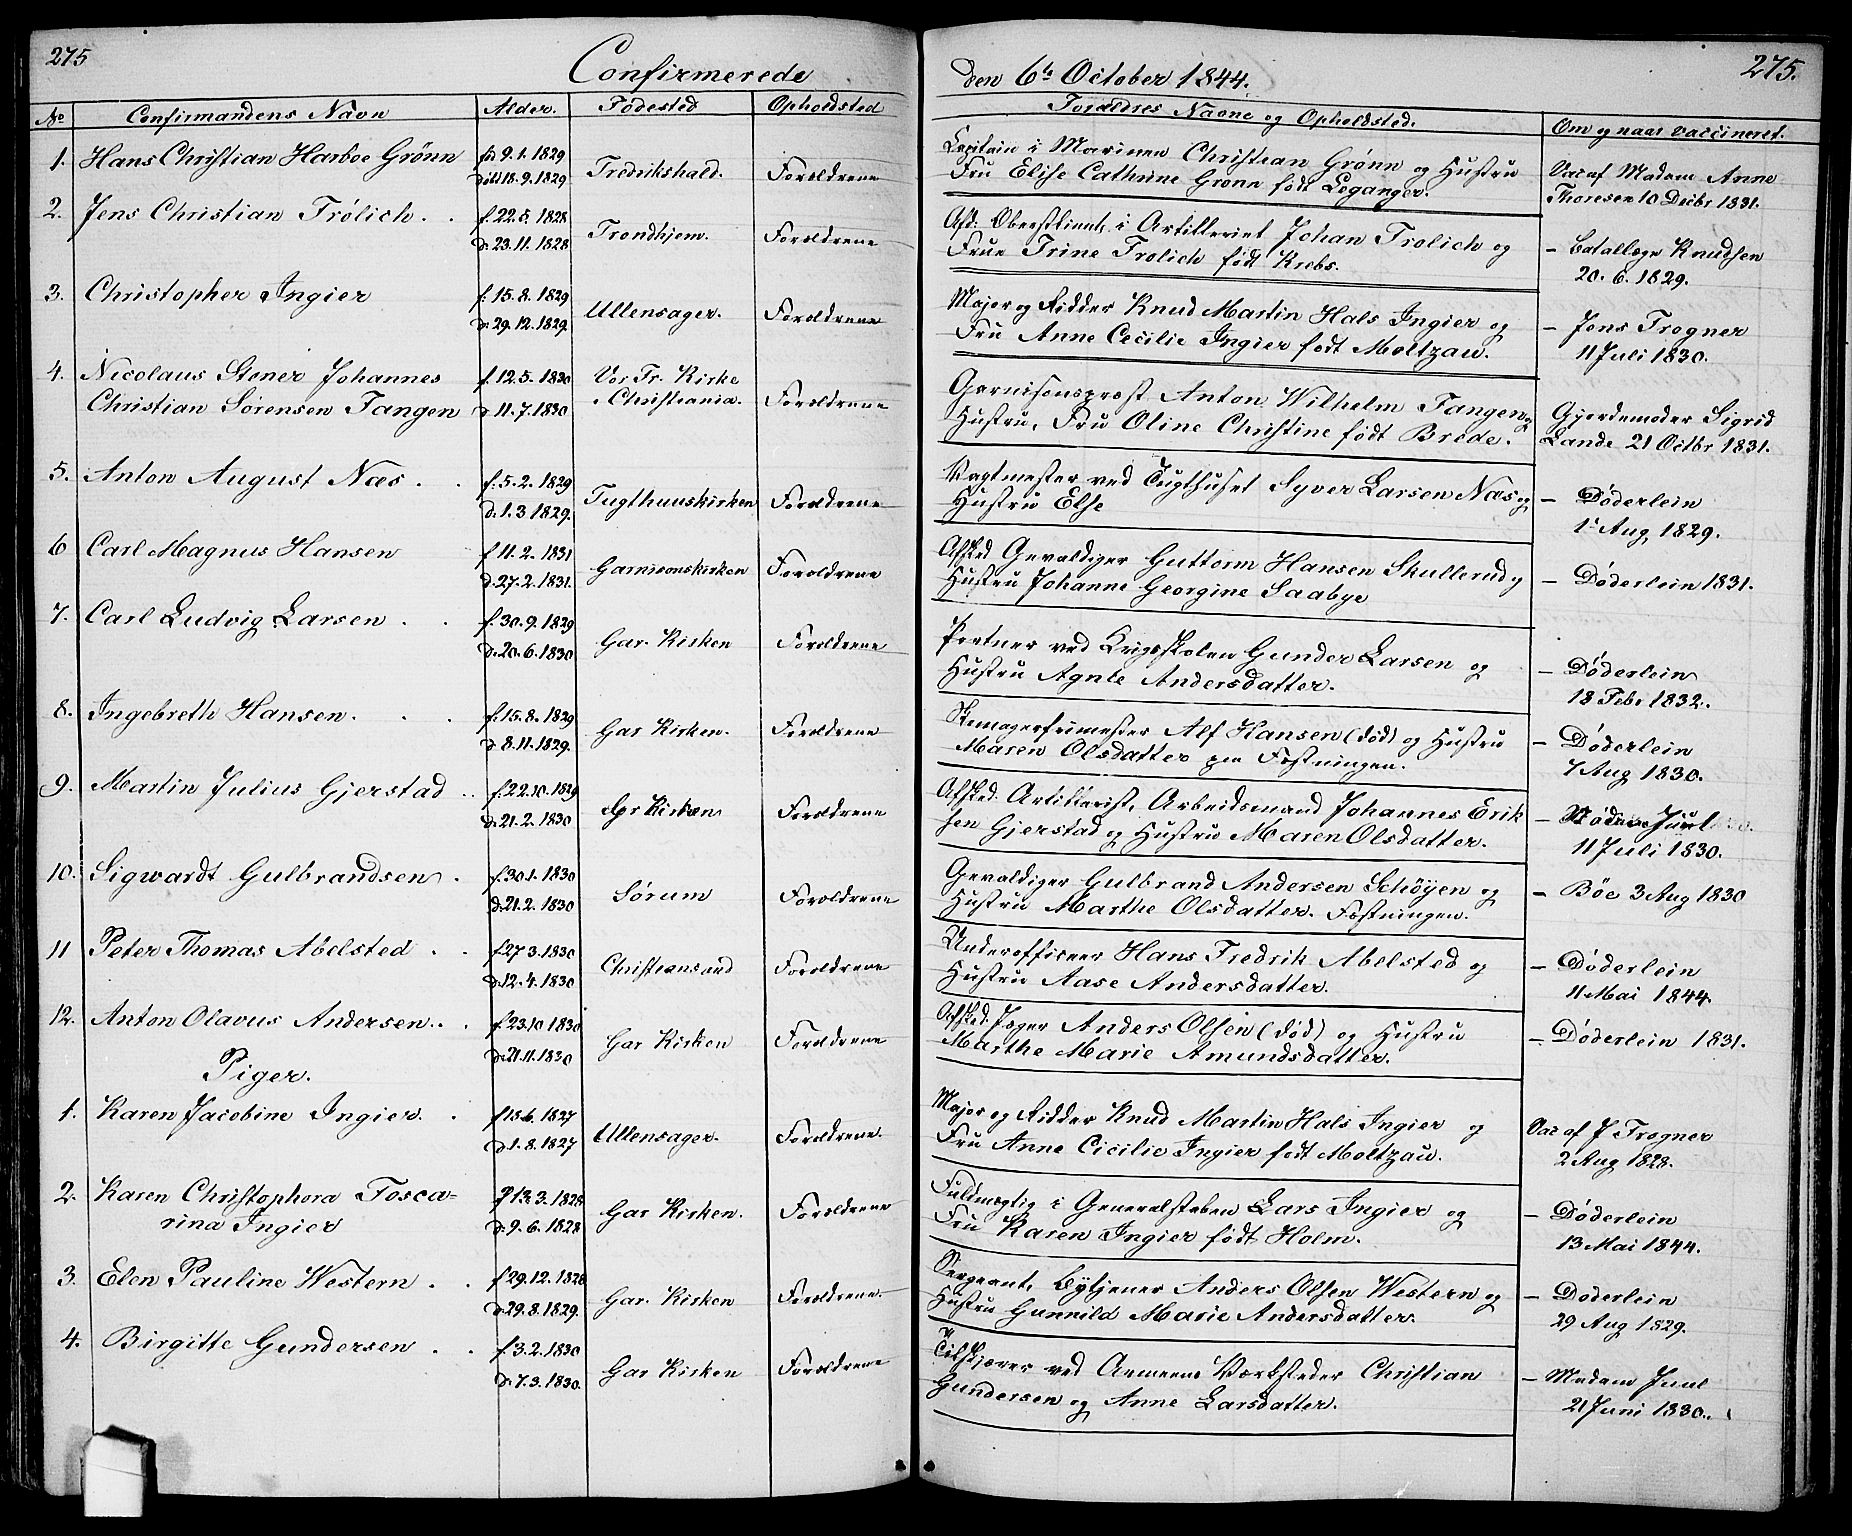 275
Confirmerede
den 6te October 1844.
275.
No Confirmandens Navn Alder. Fødested Opholdsted Forældres Navne og Opholdsted. Om og naar vaccineret.
1. Hans Christian Harboe Grønn f. 9.1.1829 Fredrikshald. Forældrene Capitain i Marinen Christian Grønn og Hustru Vac af Madam Anne
døbt 18.9.1829 Fru Elise Cathrine Grønn født Leganger. Thoresen 10 Decbr 1831.
2. Jens Christian Frölich. f. 22.5.1828 Trondhjem. Forældrene Afd. Oberstlieut. i Artilleriet Johan Frolich og – Batallæge Knudsen
d. 23.11.1828 Frue Trine Frolich født Krebs. 20.6.1829.
3. Christopher Ingier f. 15.8.1829 Ullensager. Forældrene Major og Ridder Knud Martin Hals Ingier og – Jens Trogner
d. 29.12.1829 Fru Anne Cecilie Ingier født Moltzau. 11 Juli 1830.
4. Nicolaus Stener Johannes f. 12.5.1830 Vor Fr. Kirke Forældrene Garnisonsprest Anton Wilhelm Fangen og Gjordemoder Sigrid
Christian Sørensen Fangen d. 11.7.1830 i Christiania. Hustru, Fru Oline Christine født Brede. Lande 21 Octbr 1831.
5. Anton August Næs. f. 5.2.1829 Tugthuuskirken Forældrene Vagtmester ved Tugthuset Syver Larsen Næs og – Døderlein
d. 1.3.1829. Hustru Else 1 Aug 1829.
6 Carl Magnus Hansen f. 11.2.1831 Garnisonskirken Forældrene Afsked Gevaldiger Guttorm Hansen Skullerud og – Døderlein 1831.
d. 27.2.1831. Hustru Johanne Georgine Saabye
7. Carl Ludvig Larsen. f. 30.9.1829 Gar. Kirken Forældrene Portner ved Krigsskolen Gunder Larsen og – Døderlein
d. 20.6.1830 Hustru Agnte Andersdatter. 18 Febr 1832.
8. Ingebreth Hansen. f. 15.8.1829 Gar Kirken. Forældrene Alf Hansen (død) og Hustru – Døderlein
d. 8.11.1829. Maren Olsdatter paa Fæstningen. 7 Aug 1830.
9. Martin Julius Gjerstad f. 22.10.1829 Gar Kirken Forældrene Afsked. Artillerist, Arbeidsmand Johannes Erik – Madam Juul
d. 21.2.1830 sen Gjerstad og Hustru Maren Olsdatter. 11 Juli 1830.
10. Sigwardt Gulbrandsen. f. 30.1.1830 Sørum Forældrene Gevaldiger Gulbrand Andersen Schöyen og – Böe 3 Aug 1830
d. 21.2.1830 Hustru Marthe Olsdatter. Fæstningen.
11 Peter Thomas Abelsted. f. 27 3.1830 Christiansand Forældrene Underofficeer Hans Fredrik Abelsted og – Døderlein
d. 12.4.1830 Hustru Aase Andersdatter. 11 Mai 1844.
12. Anton Olavus Andersen. f. 23.10 1830 Gar Kirken Forældrene Afsked. Jæger Anders Olsen (død) og Hustru – Døderlein 1831.
d. 21.11.1830 Marthe Marie Amundsdatter.
Piger.
1. Karen Jacobine Ingier. f. 15.6.1827 Ullensager. Forældrene. Major og Ridder Knud Martin Hals Ingier og Vac af J Trogner
d. 1.8.1827 Fru Anne Cicilie Ingier født Moltzau. 2 Aug 1828.
2. Karen Christophora Tosca= f. 13.3.1828 Gar Kirken. Forældrene Fuldmægtig i Generalstaben Lars Ingier og – Døderlein
rina Ingier d. 9.6.1828 Fru Karen Ingier født Holm. 13 Mai 1844.
3. Elen Pauline Western. f. 29.12.1828 Gar. Kirken Forældrene. Sergeant, Bytjener Anders Olsen Western og – Døderlein
d. 29.8.1829. Hustru Gunnild Marie Andersdatter. 29 Aug 1829.
4. Birgitte Gundersen. f. 3.2.1830 Gar Kirken Forældrene Tilskjærer ved Armeens Værksteder Christian – Madam Juul
d. 7.3.1830. Gundersen og Anne Larsdatter. 21 Juni 1830.